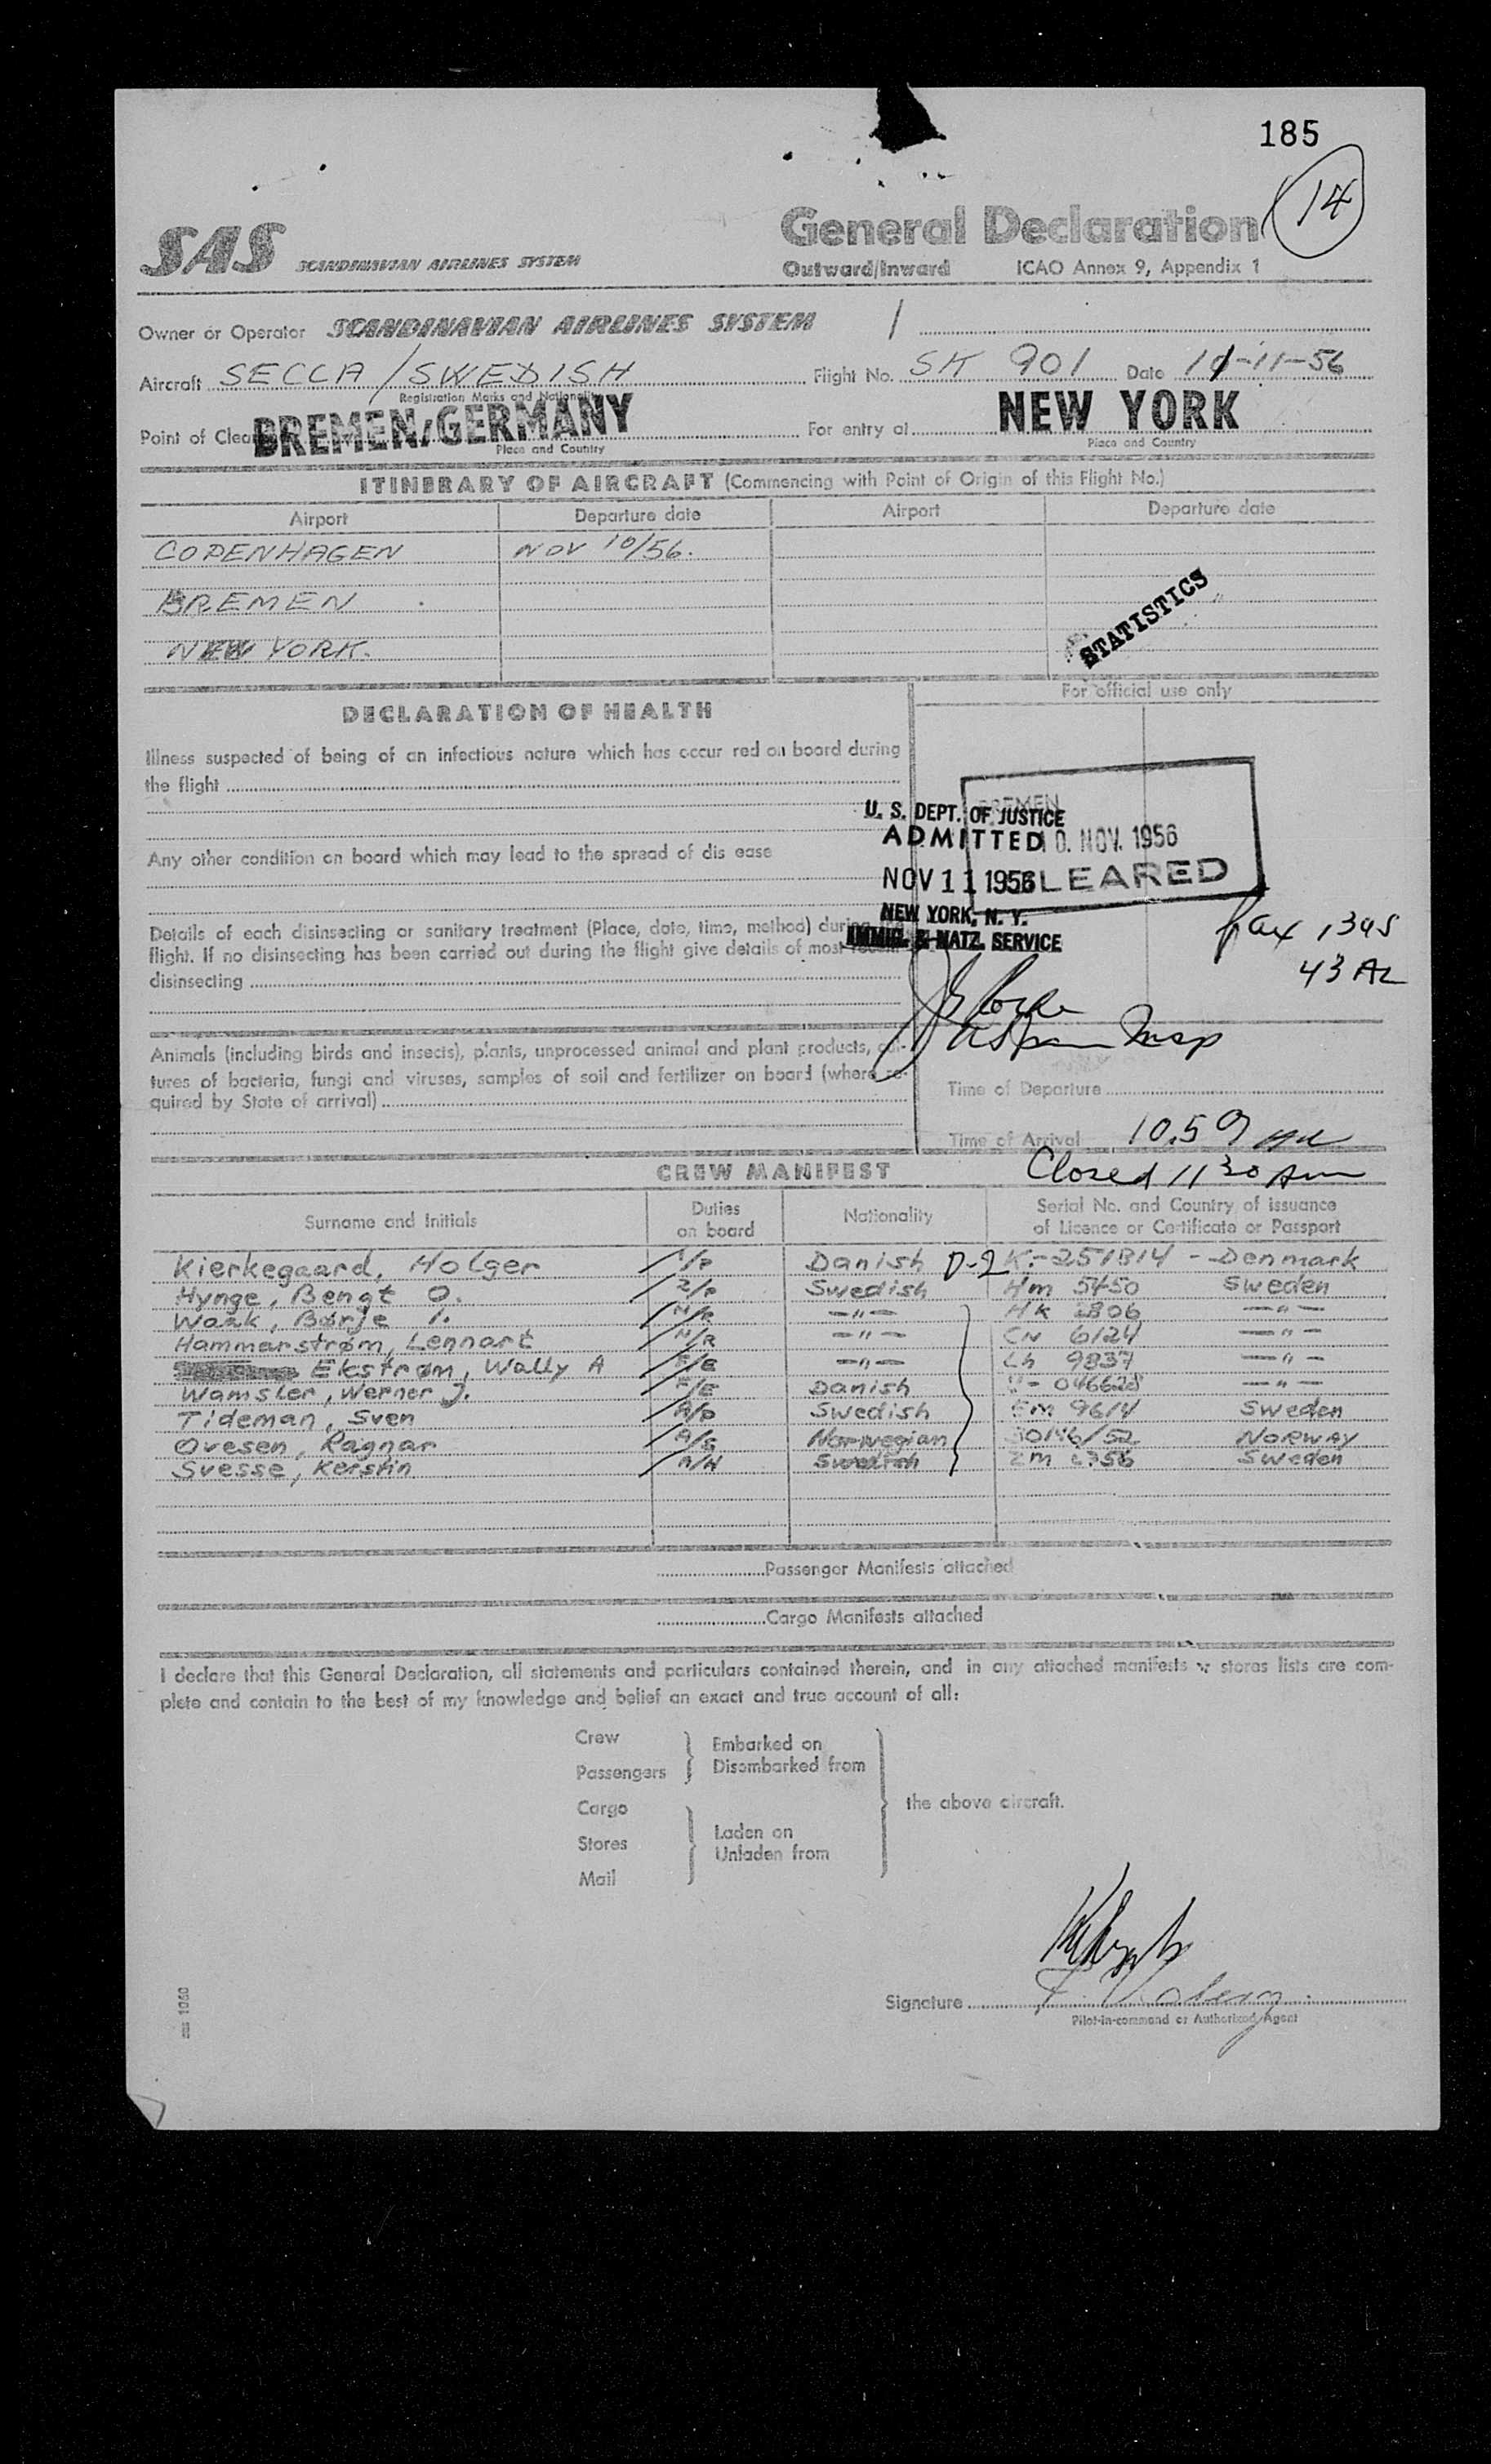 185
14
SAS SCANDINAVIAN AIRLINES SYSTEM
General Declaration
Outward/Inward ICAO Annex 9, Appendix 1
Owner or Operator SCANDINAVIAN AIRLINES SYSTEM
Aircraft SECCA / SWEDISH Flight No. SK 901 Date 11-11-56
Registration Marks and Nationality
Point of Clea BREMEN/GERMANY For entry at NEW YORK
Place and Country Place and Country
ITINERARY OF AIRCRAFT (Commencing with Point of Origin of this Flight No.)
Airport Departure date Airport Departure date
COPENHAGEN NOV 10/56.
BREMEN
NEW YORK.
STATISTICS
For official use only
DECLARATION OF HEALTH
Illness suspected of being of an infectious nature which has occur red on board during
the flight
Any other condition on board which may lead to the spread of dis ease
BREMEN
10. NOV. 1956
CLEARED
U. S. DEPT. OF JUSTICE
ADMITTED
NOV 11 1956
NEW YORK, N. Y.
IMMIG. & NATZ. SERVICE
43 AL
Details of each disinsecting or sanitary treatment (Place, date, time, method) during
flight. If no disinsecting has been carried out during the flight give details of most recent
disinsecting
Insp
Animals (including birds and insects), plants, unprocessed animal and plant products, cul-
tures of bacteria, fungi and viruses, samples of soil and fertilizer on board (where re-
quired by State of arrival)
Time of Departure
Time of Arrival 10.59 AM
Closed 11 30 Am
CREW MANIFEST
Surname and Initials Duties on board Nationality Serial No. and Country of issuance of Licence or Certificate or Passport
Kierkegaard, Holger 1/P Danish D-2 K-251814 - Denmark
Hynge, Bengt O. 2/P Swedish Hm 5450 Sweden
Waak, Børje I. N/R —"— Hk 2806 —"—
Hammarstrøm, Lennart N/R —"— CN 6124 —"—
Ekstrøm, Wally A F/E —"— Lh 9837 —"—
Wamsler, Werner J. F/E Danish 046628 —"—
Tideman, Sven A/P Swedish Em 9614 Sweden
Ovesen, Ragnar A/S Norwegian 30146/52 NORWAY
Svesse, Kerstin A/H Swedish Zm 2356 Sweden
Passenger Manifests attached
Cargo Manifests attached
I declare that this General Declaration, all statements and particulars contained therein, and in any attached manifests or stores lists are com-
plete and contain to the best of my knowledge and belief an exact and true account of all:
Crew
Passengers
Embarked on
Disembarked from
Cargo
Stores
Mail
Laden on
Unladen from
the above aircraft.
Signature
Pilot-in-command or Authorized Agent
1060